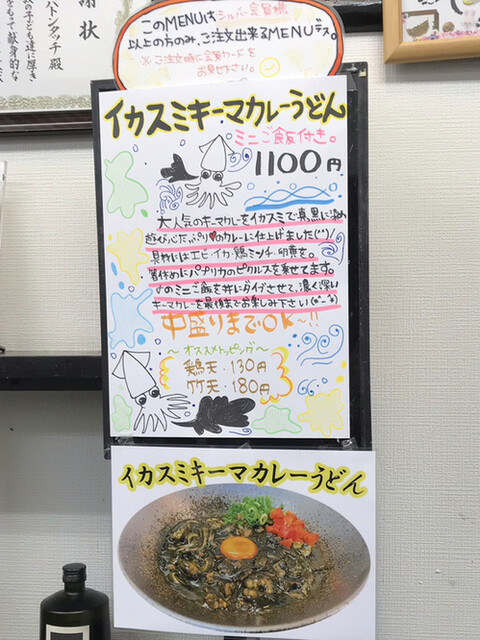 このMENUはシルバー会員様
以上の方のみ、ご注文出来るMENUデス。
※ご注文時に会員カードを
お見せ下さい。
イカスミキーマカレーうどん
ミニご飯付き。
1100円
大人気のキーマカレーをイカスミで真黒に染め
遊び心たっぷり♥のカレーに仕上げました(^^)/
具材にはエビ・イカ・鶏ミンチ・卵黄を。
箸休めにパプリカのピクルスを乗せてます。
〆のミニご飯を丼にダイブさせて、濃く深い
キーマカレーを最後までお楽しみ下さい(*^-^*)
中盛りまでOK〜!!
〜オススメトッピング〜
鶏天・130円
竹天・180円
イカスミキーマカレーうどん
謝状
ハートンタッチ殿